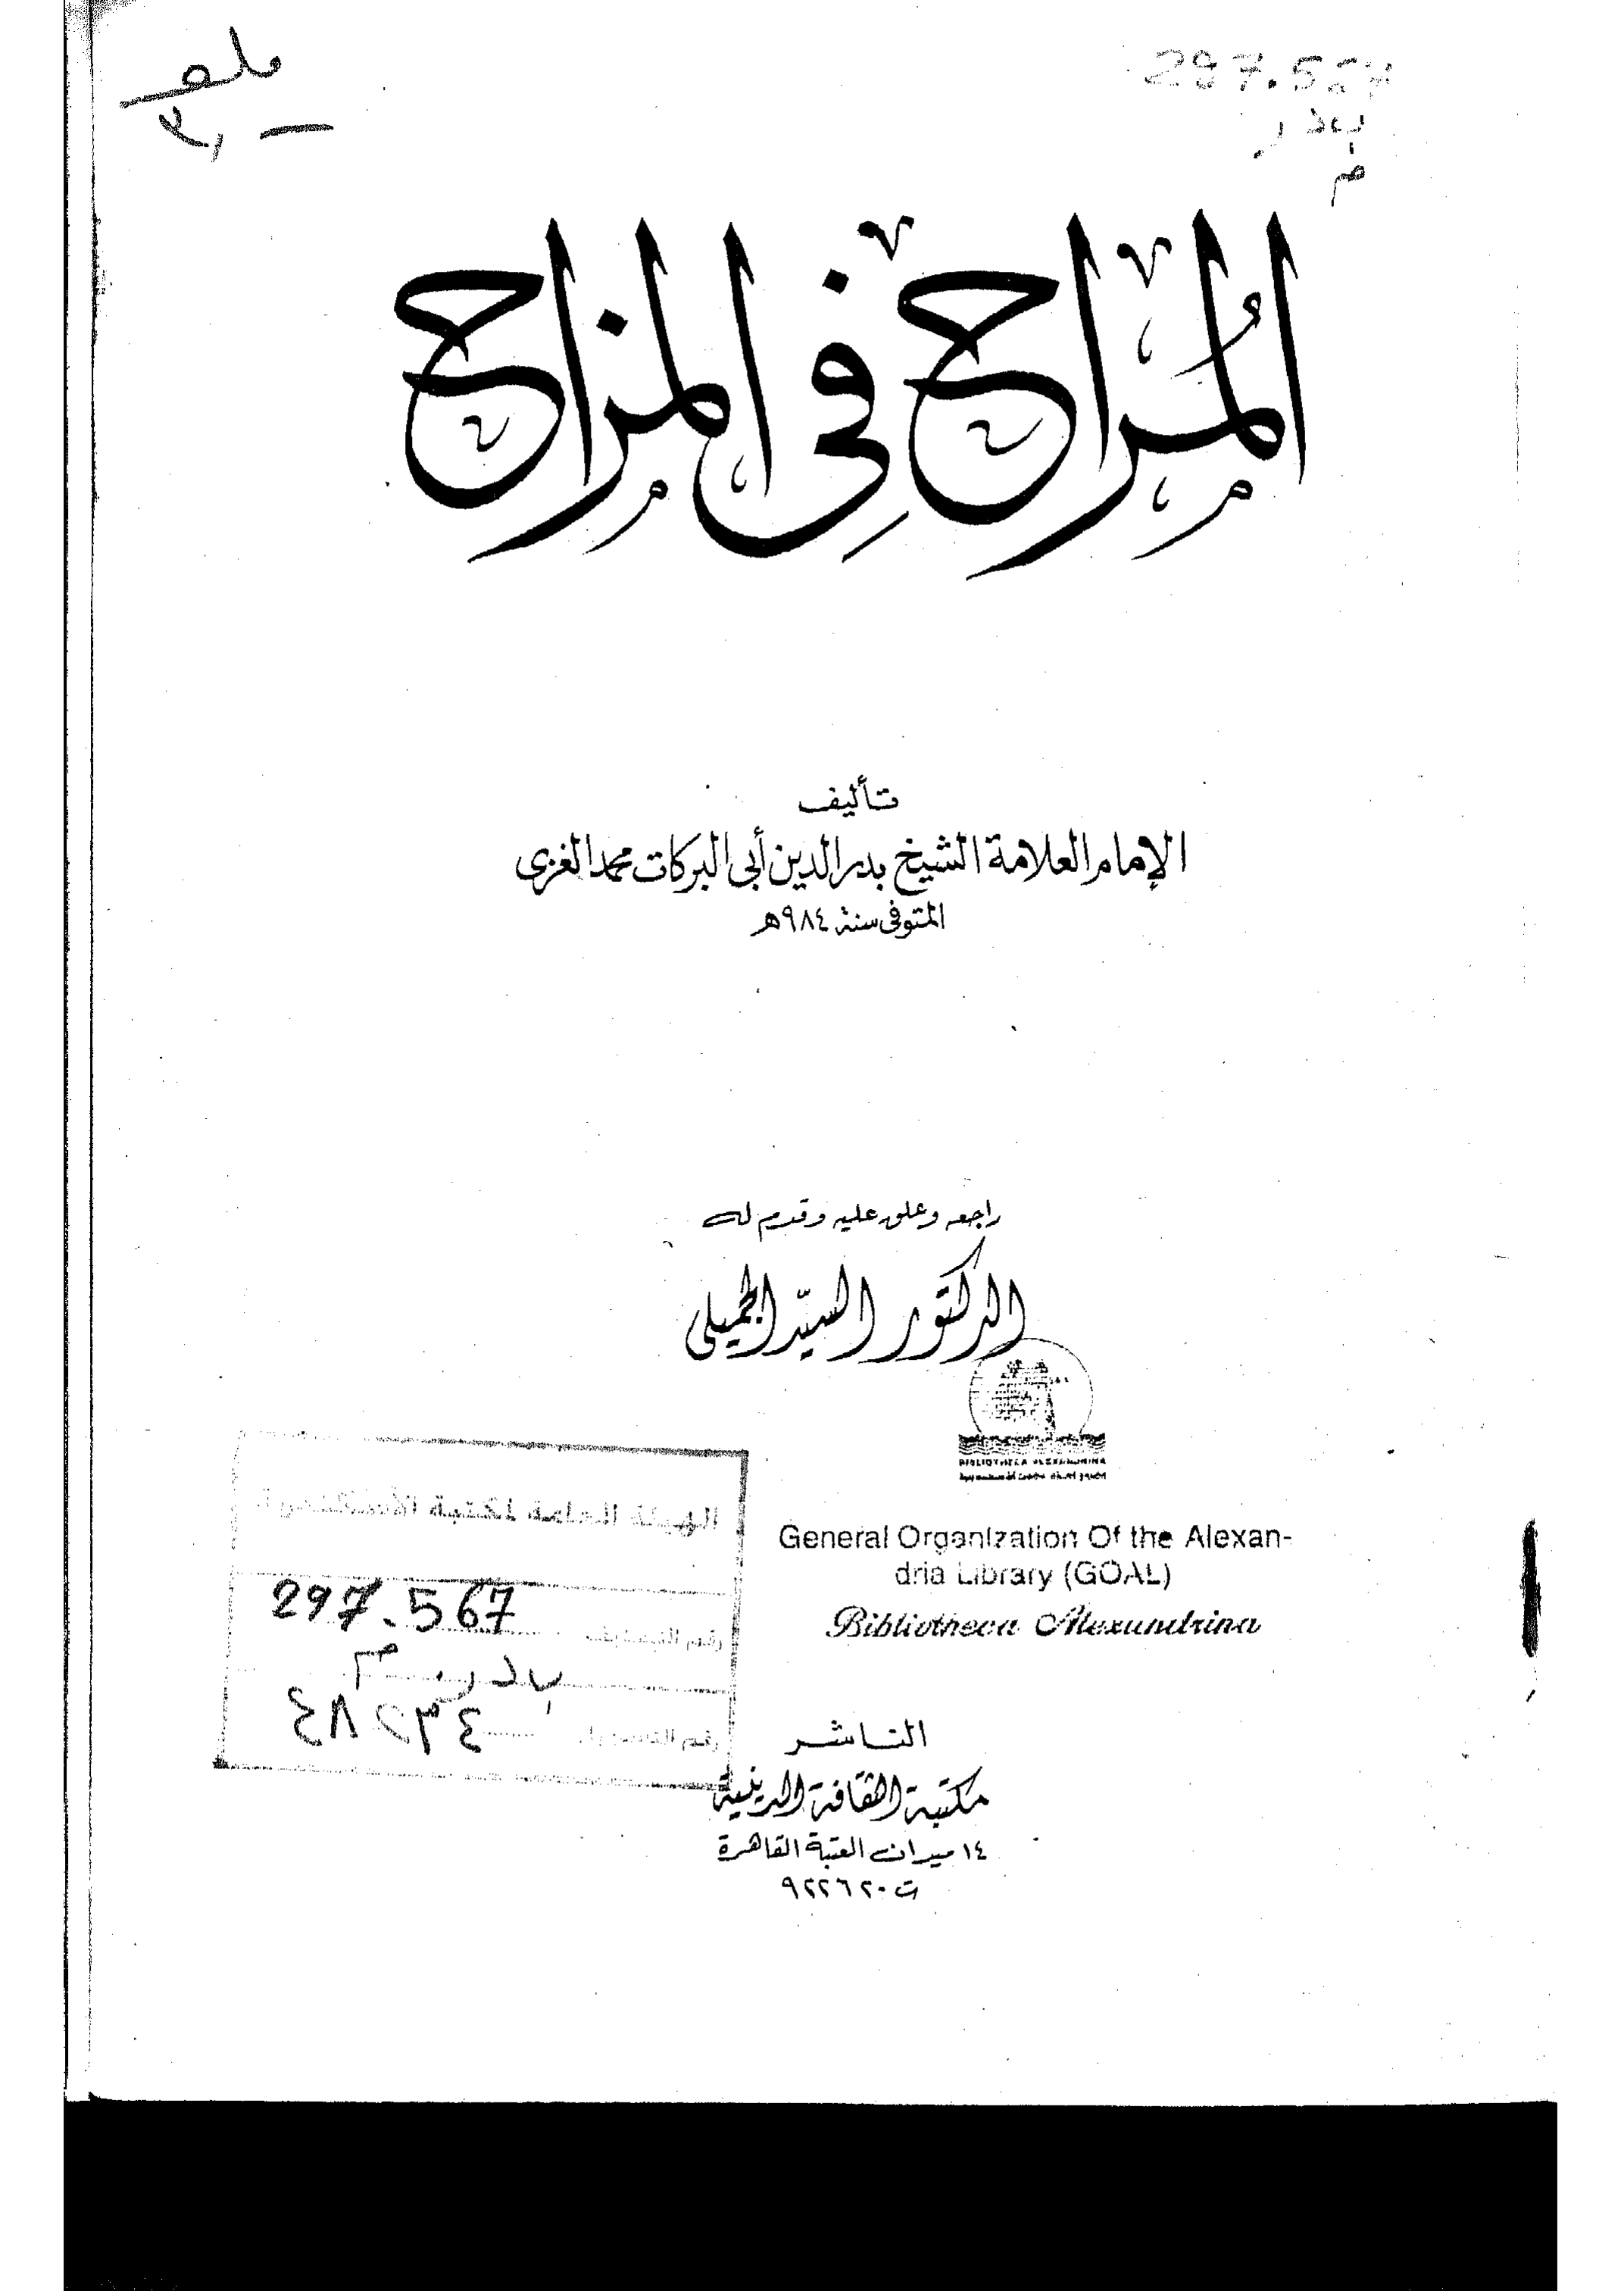 297.567
بدر
م
المُراح فِي المزاح
تأليف
الإمام العلامة الشيخ بدر الدين أبى البركات محمد الغزى
المتوفى سنة ٩٨٤ هـ
راجعه وعلق عليه وقدم له
الدكتور السيّد الجميلى
BIBLIOTHECA ALEXANDRINA
General Organization Of the Alexan-
dria Library (GOAL)
Bibliotheca Alexandrina
الهيئة العامة لمكتبة الأسكندرية
297.567
بدر م
الناشر
مكتبة الثقافة الدينية
١٤ ميدان العتبة القاهرة
ت ٩٢٢٦٢٠